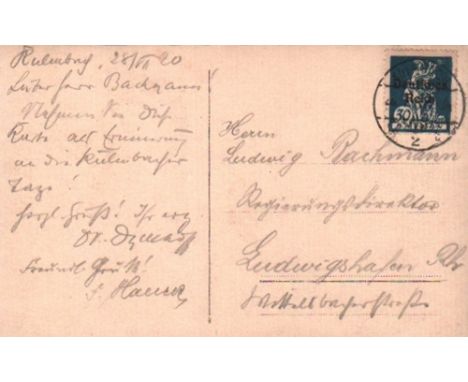 Kulmbach, 28/VII 20
Lieber Herr Bachmann!
Nehmen Sie diese
Karte als Erinnerung
an die Kulmbacher
Tage!
herzl. Gruß! Ihr erg.
Dr.
Freundl. Gruß!
Deutsches
Reich
BAYERN
2
Herrn
Ludwig Bachmann
Regierungsdirektor
Ludwigshafen Rh
Wittelsbacherstraße